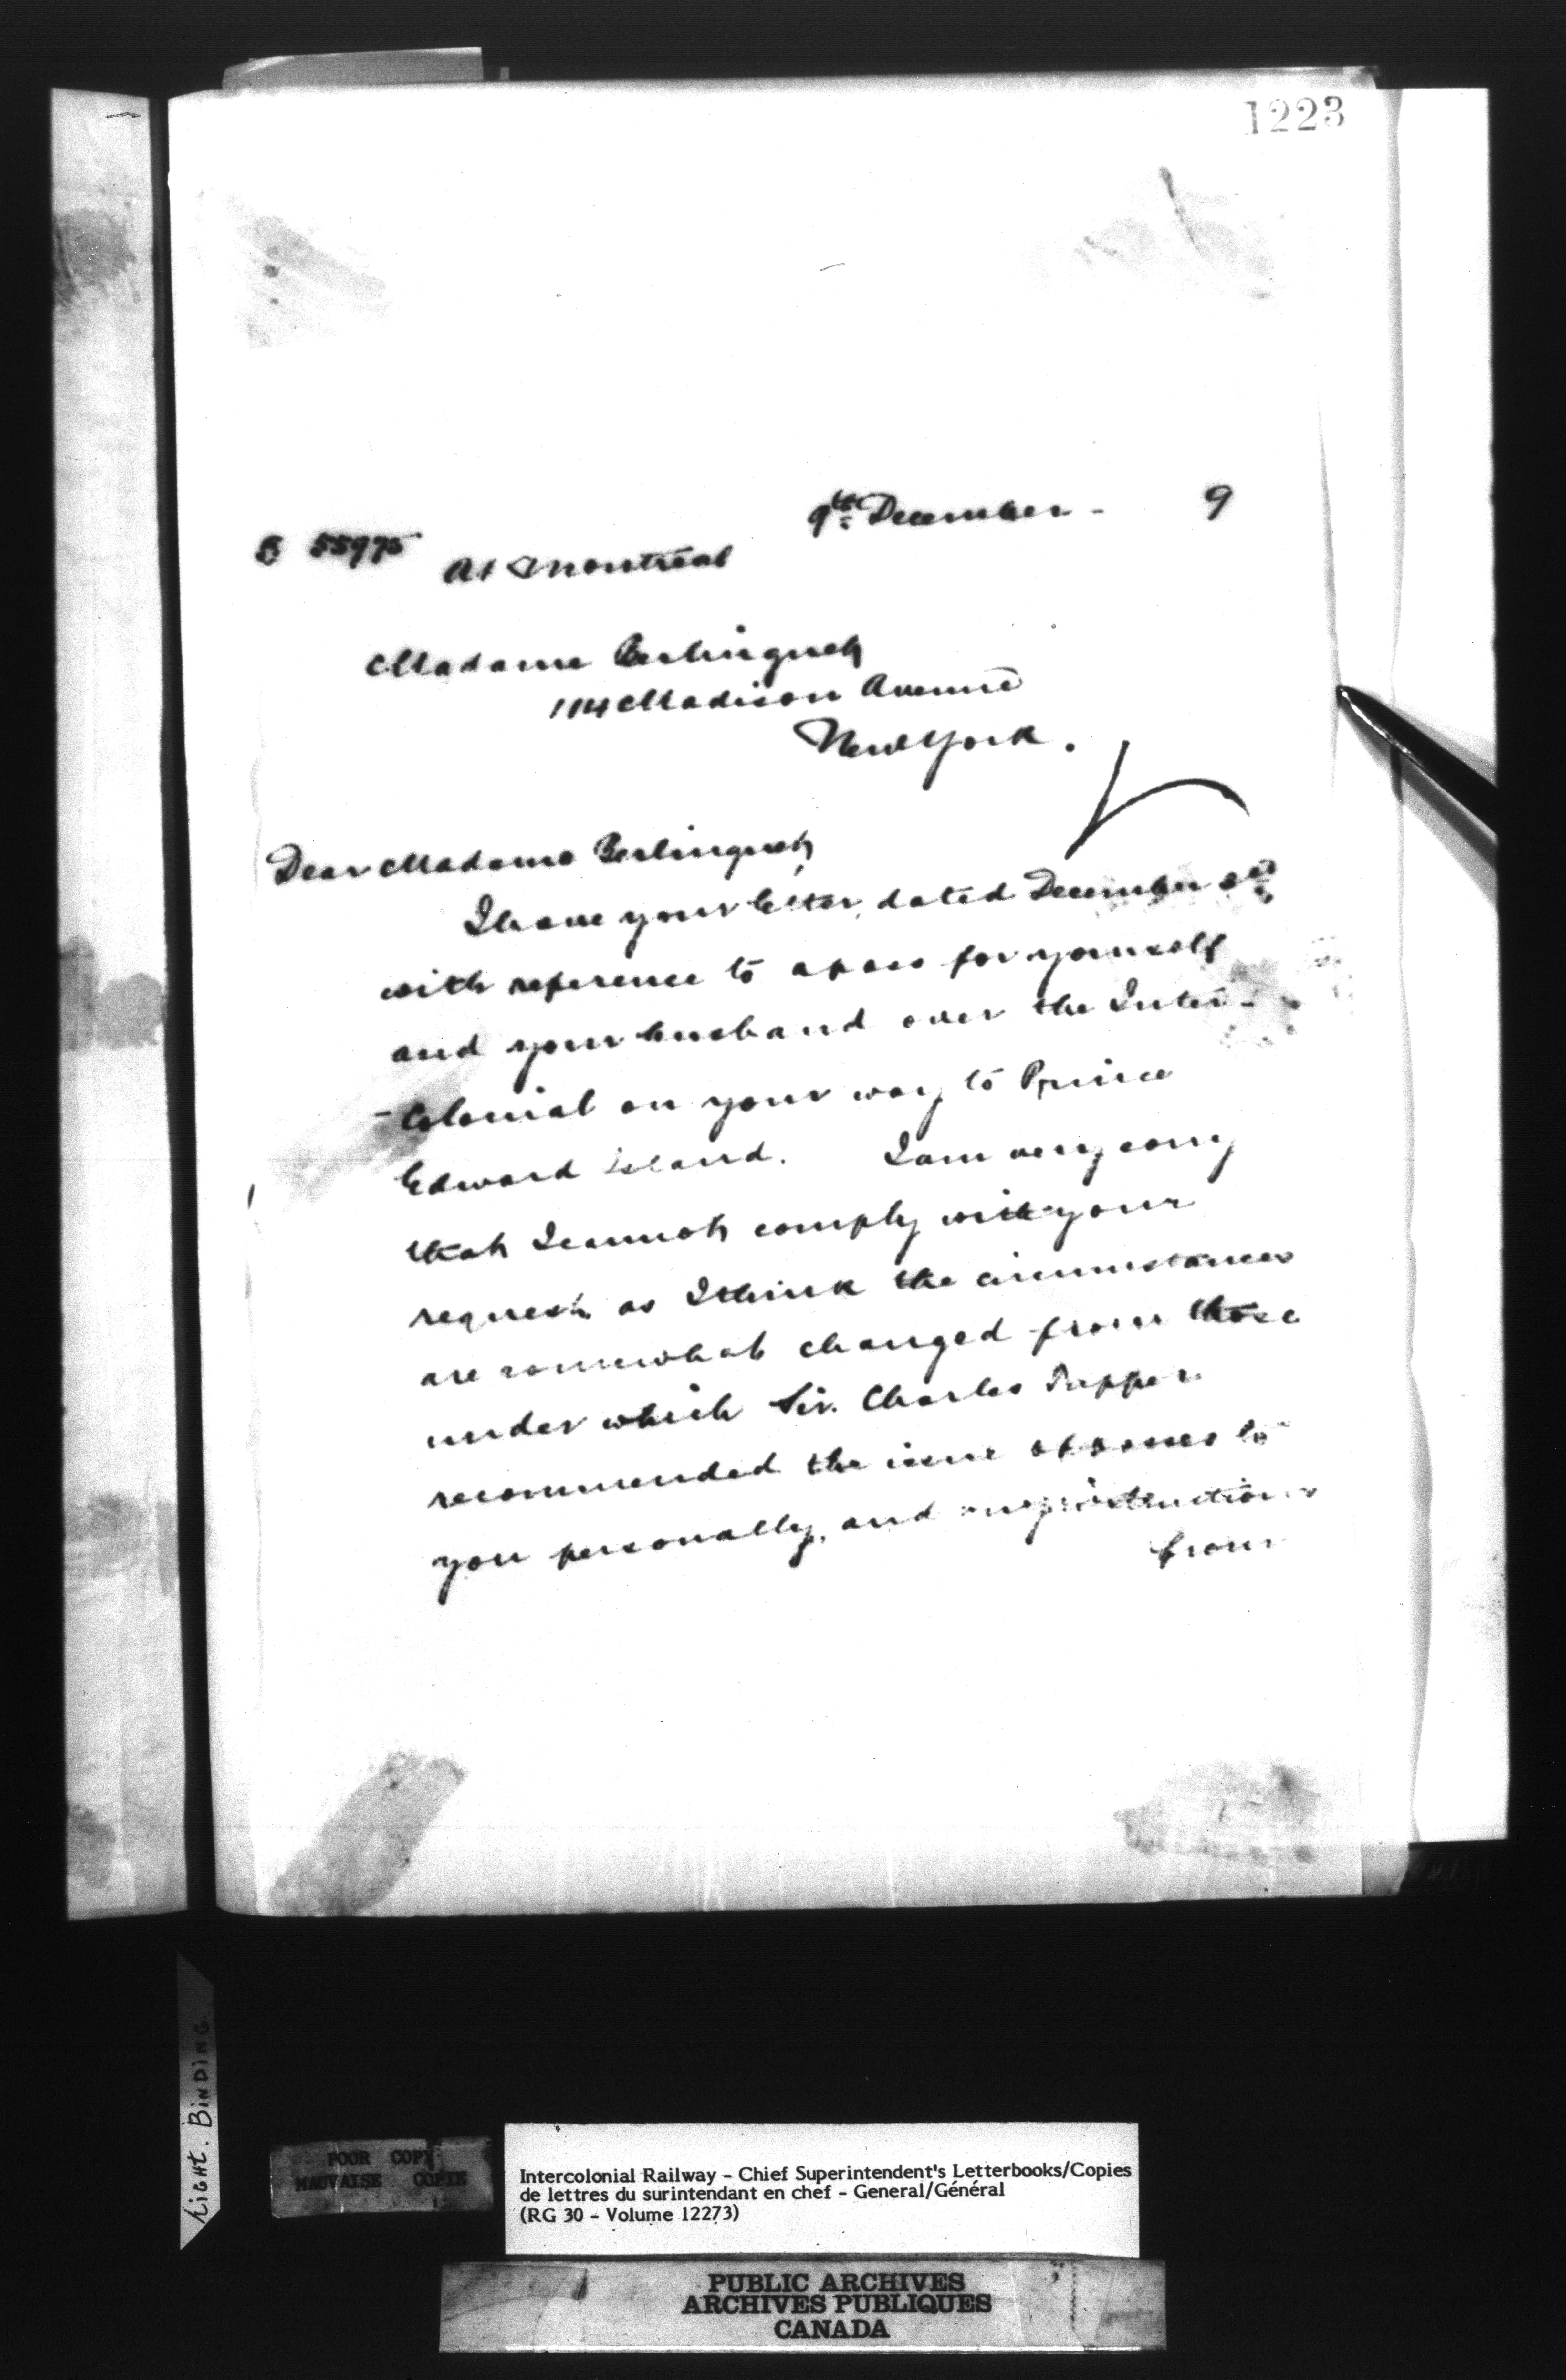 1223
9th December - 9
55975
At Montreal
Madame Berlinguet
114 Madison Avenue
New York.
Dear Madame Berlinguet,
I have your letter, dated December
with reference to a pass for yourself
and your husband over the Inter-
-colonial on your way to Prince
Edward Island. I am very sorry
that I cannot comply with your
request, as I think the circumstances
are somewhat changed from those
under which Sir. Charles Tupper
recommended the issue of passes to
you personally, and my instructions
from
Light. Binding.
POOR COPY
MAUVAISE COPIE
Intercolonial Railway - Chief Superintendent's Letterbooks/Copies
de lettres du surintendant en chef - General/Général
(RG 30 - Volume 12273)
PUBLIC ARCHIVES
ARCHIVES PUBLIQUES
CANADA